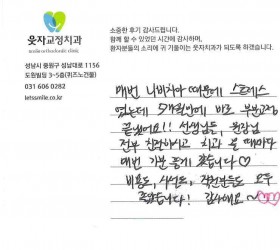 소중한 후기 감사드립니다.
함께 할 수 있었던 시간에 감사하며,
환자분들의 소리에 귀 기울이는 웃자치과가 되도록 하겠습니다.
웃자교정치과
성남시 중원구 성남대로 1156
도원빌딩 3~5층(퀴즈노건물)
031 606 0282
letssmile.co.kr
매번 나비치아 때문에 스트레스
였는데 5개월만에 바로 부분교정
끝났어요!! 선생님들, 원장님
전부 친절하시고 치과 올 때마다
매번 기분 좋게 왔습니다♡
비용도, 시설도, 직원분들도 모두
좋았습니다! 감사해요~♡♡